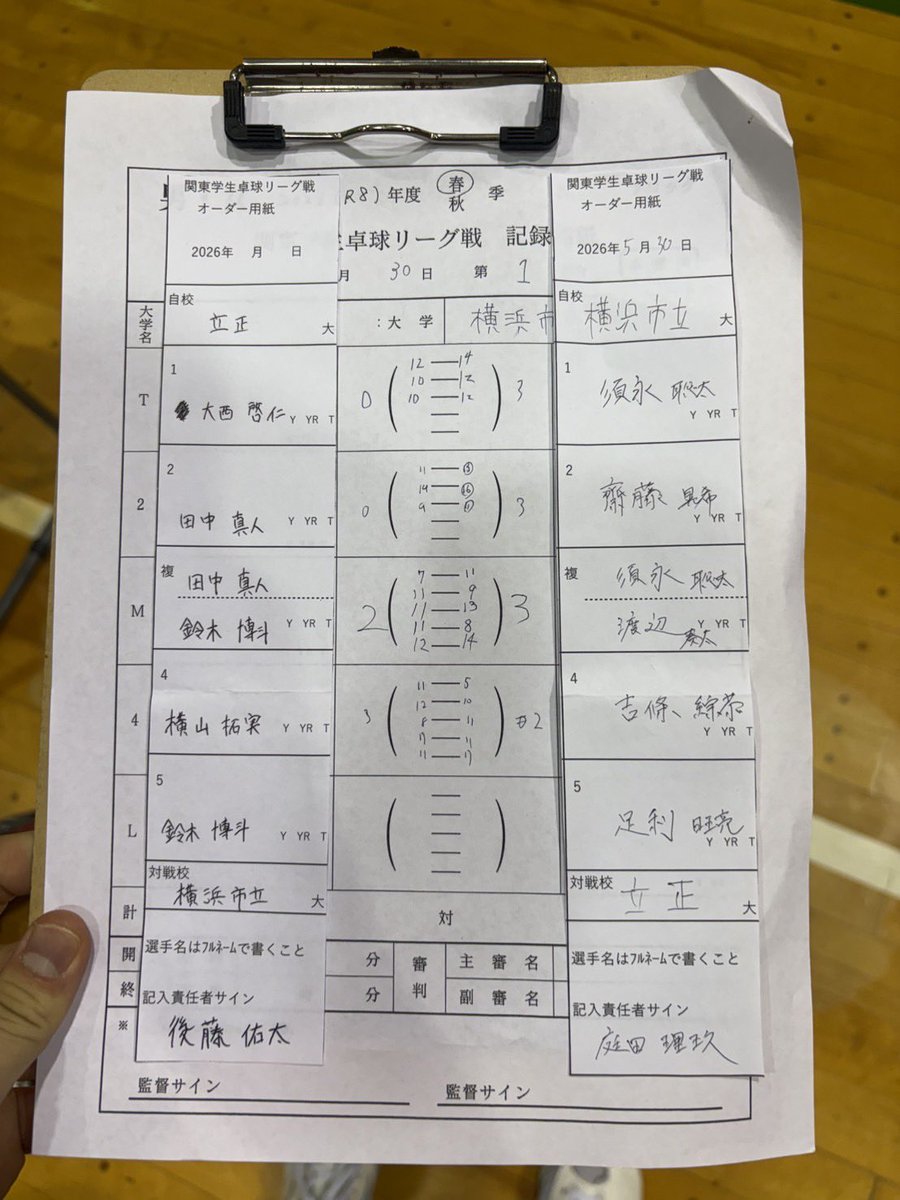 関東学生卓球リーグ戦
オーダー用紙
2026年 月 日
自校
立正 大
1
大西 啓仁 Y YR T
2
田中 真人 Y YR T
複 田中 真人
鈴木 博斗 Y YR T
4
横山 拓実 Y YR T
5
鈴木 博斗 Y YR T
対戦校
横浜市立 大
選手名はフルネームで書くこと
記入責任者サイン
後藤 佑太
R8)年度 春 秋 季
卓球リーグ戦 記録
月 30日 第1
大学名 :大 学 横浜市
T 0 ( 12 — 14 ) 3
10 — 12
10 — 12
2 0 ( 11 — ) 3
14 — 16
9 —
M 2 ( 7 — 11 ) 3
11 — 9
11 — 13
11 — 8
12 — 14
4 3 ( 11 — 5 ) 2
12 — 10
8 — 11
— 11
11 —
L ( )
計 対
開 分 審判 主審名
終 分 副審名
※
監督サイン 監督サイン
関東学生卓球リーグ戦
オーダー用紙
2026年5月30日
自校
横浜市立 大
1
須永 聡太
Y YR T
2
齋藤
Y YR T
複 須永 聡太
渡辺 Y YR T
4
吉條
Y YR T
5
足利 旺亮
Y YR T
対戦校
立正 大
選手名はフルネームで書くこと
記入責任者サイン
庭田 理玖